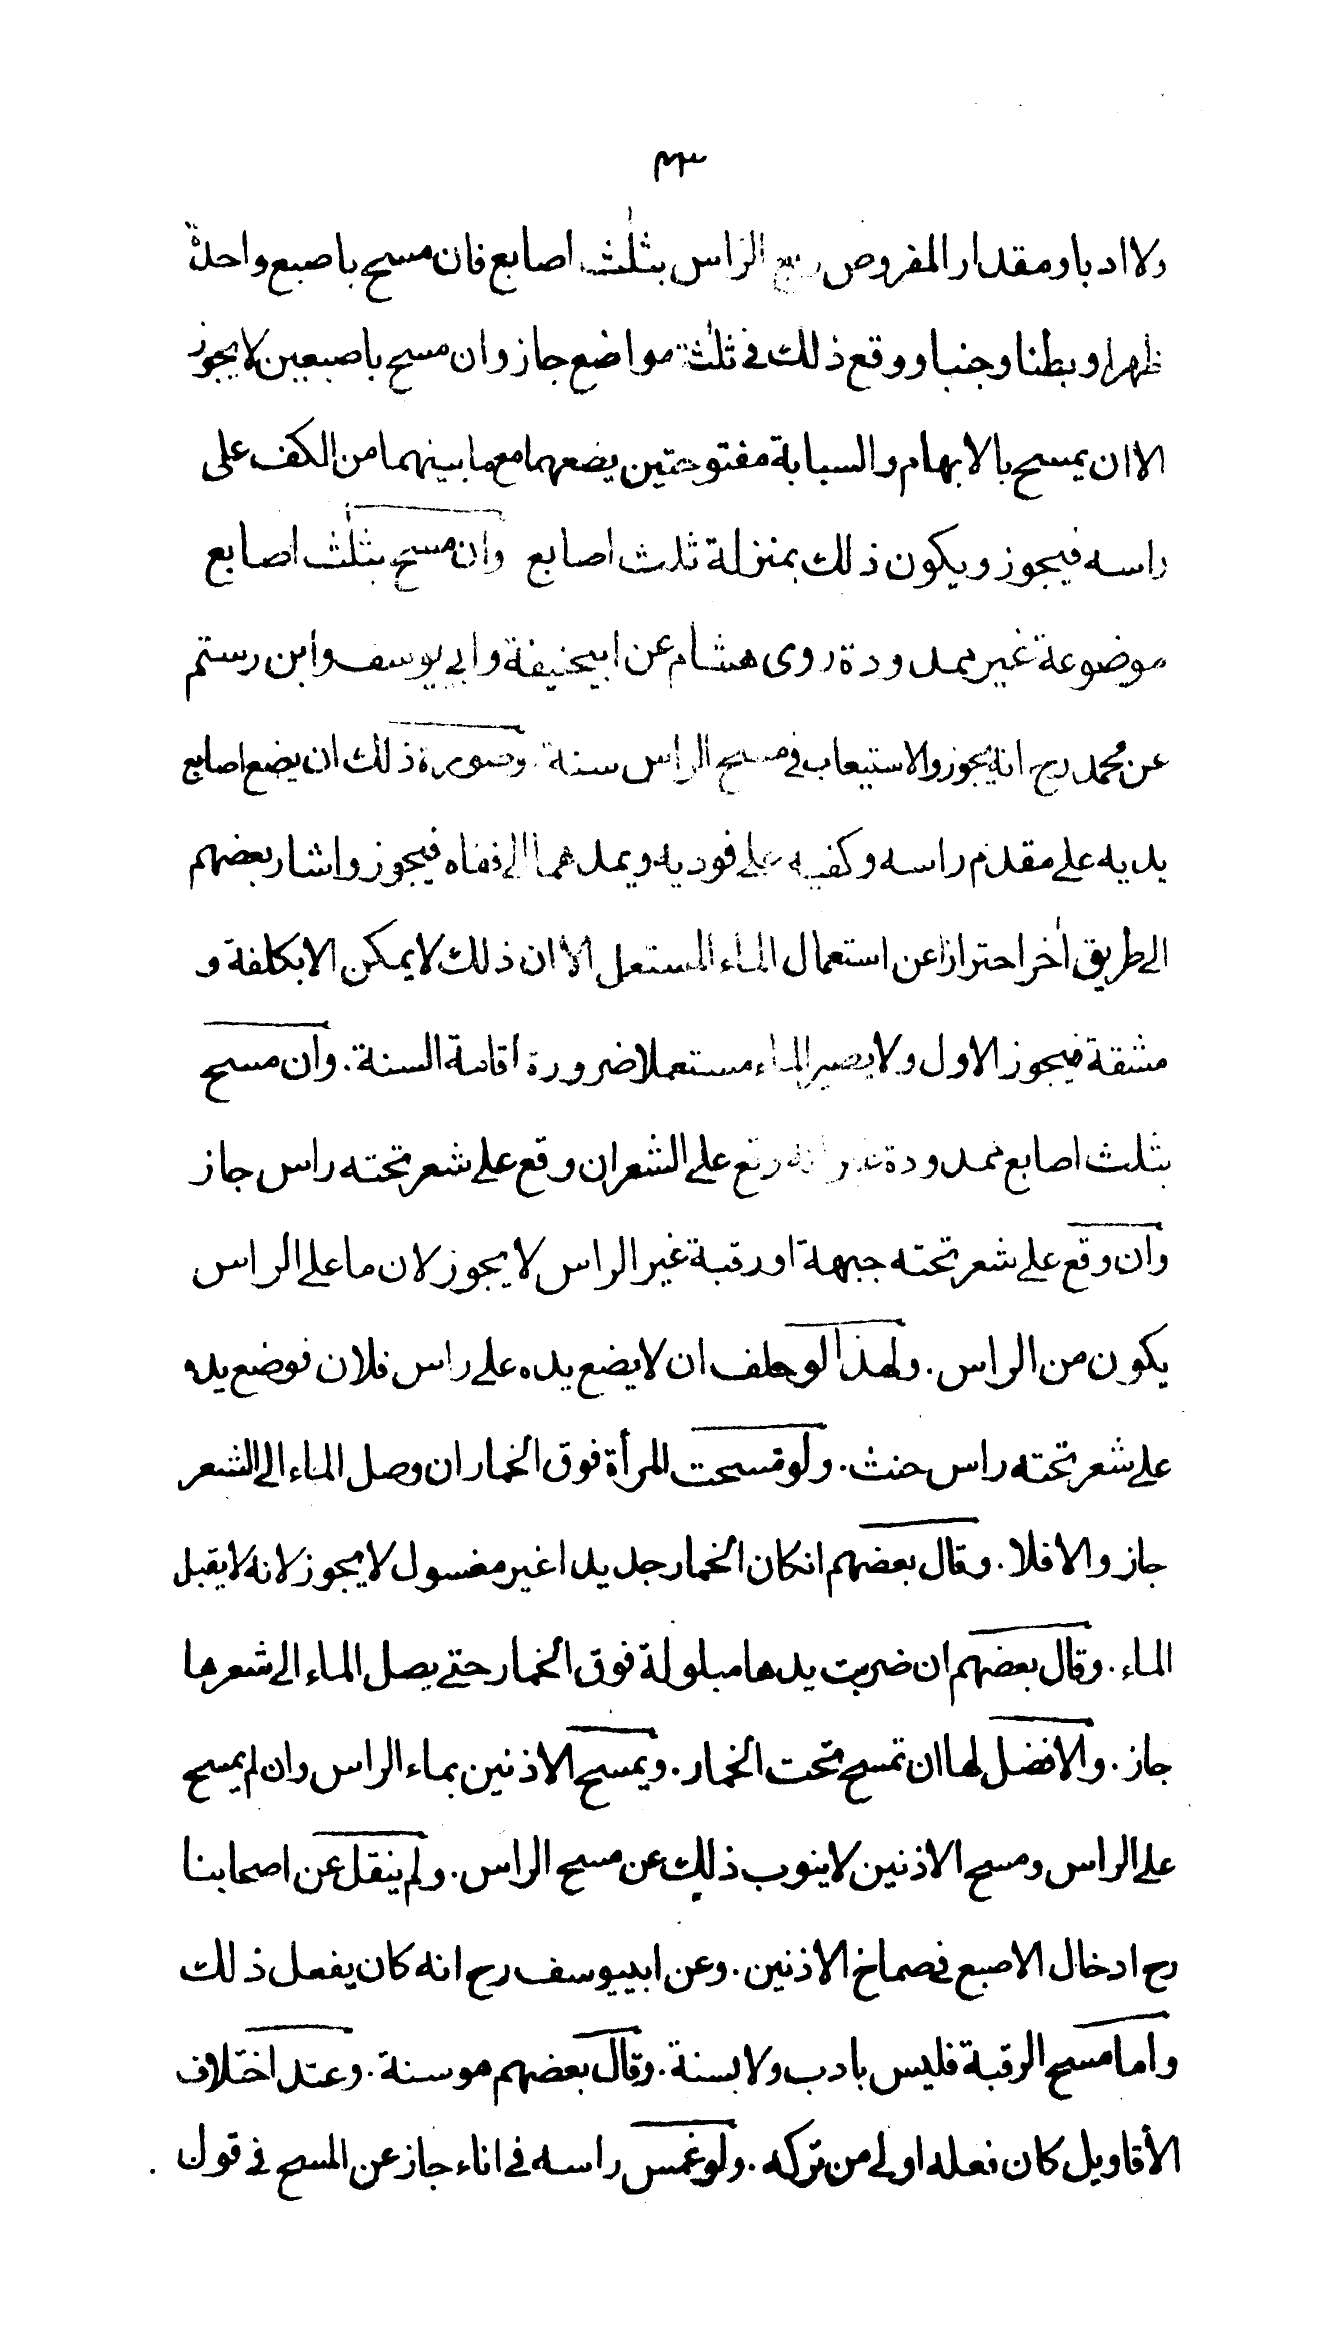 ٤٣
ولا ادبا ومقدار المفروض ربع الراس بثلٰث اصابع فان مسح باصبع واحدة
ظهرا وبطنا وجنبا ووقع ذلك في ثلٰثة مواضع جاز وان مسح باصبعين لا يجوز
الا ان يمسح بالابهام والسبابة مفتوحتين يضعهما مع ما بينهما من الكف على
راسه فيجوز ويكون ذلك بمنزلة ثلث اصابع وان مسح بثلٰث اصابع
موضوعة غير ممدودة روى هشام عن ابيحنيفة وابي يوسف وابن رستم
عن محمد رح انه يجوز والاستيعاب في مسح الراس سنة وصورة ذلك ان يضع اصابع
يديه على مقدم راسه وكفيه على فوديه ويمدهما الى قفاه فيجوز واشار بعضهم
الى طريق اٰخر احترازا عن استعمال الماء المستعمل الا ان ذلك لا يمكن الا بكلفة و
مشقة فيجوز الاول ولا يصير الماء مستعملا ضرورة اقامة السنة. وان مسح
بثلث اصابع ممدودة غير انه وقع على الشعر ان وقع على شعر تحته راس جاز
وان وقع على شعر تحته جبهة او رقبة غير الراس لا يجوز لان ما على الراس
يكون من الراس. ولهذا لو حلف ان لا يضع يده على راس فلان فوضع يده
على شعر تحته راس حنث. ولو مسحت المرأة فوق الخمار ان وصل الماء الى الشعر
جاز والا فلا. وقال بعضهم انكان الخمار جديدا غير مغسول لا يجوز لانه لا يقبل
الماء. وقال بعضهم ان ضربت يدها مبلولة فوق الخمار حتى يصل الماء الى شعرها
جاز. والافضل لها ان تمسح تحت الخمار. ويمسح الاذنين بماء الراس وان لم يمسح
على الراس ومسح الاذنين لا ينوب ذلك عن مسح الراس. ولم ينقل عن اصحابنا
رح ادخال الاصبع في صماخ الاذنين. وعن ابييوسف رح انه كان يفعل ذلك
واما مسح الرقبة فليس بادب ولا بسنة. وقال بعضهم هو سنة. وعند اختلاف
الأقاويل كان فعله اولى من تركه. ولو غمس راسه في اناء جاز عن المسح في قول